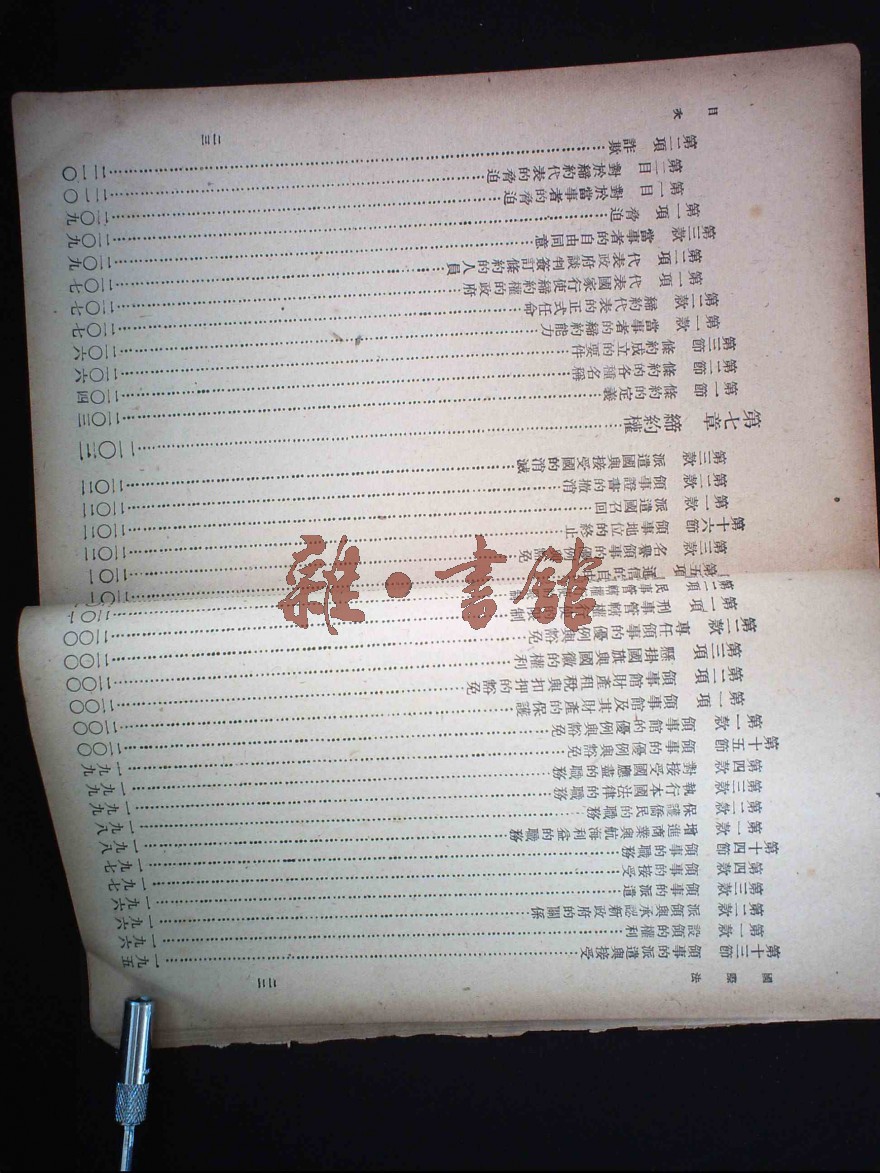 國際法
二二
第十三節 領事的派遣與接受……一九五
第一款 設領的權利……一九六
第二款 派領與承認新政府的關係……一九六
第三款 領事的派遣……一九七
第四款 領事的接受……一九七
第十四節 領事的職務……一九八
第一款 增進商業與航海利益的職務……一九八
第二款 保護僑民的職務……一九九
第三款 執行本國法律的職務……一九九
第四款 對接受國應盡的職務……一九九
第十五節 領事的優例與豁免……二〇〇
第一款 領事館的優例與豁免……二〇〇
第一項 領事館及其財產的保護……二〇〇
第二項 領事館財產租稅與扣押的豁免……二〇〇
第三項 懸掛國旗與國徽的權利……二〇〇
第二款 專任領事的優例與豁免……二〇〇
第一項 刑事管轄權行使的限制
第二項 民事管轄權
第五項 通信的自由……二〇一
第三款 名譽領事的優例與豁免……二〇二
第十六節 領事地位的終止……二〇二
第一款 派遣國召回……二〇二
第二款 領事證書的撤消……二〇二
第三款 派遣國與接受國的消滅
第七章 締約權……二〇三
第一節 條約的定義……二〇四
第二節 條約的各種名稱……二〇六
第三節 條約成立的要件……二〇六
第一款 當事者的締約能力……二〇七
第二款 締約代表的正式任命……二〇七
第一項 代表國家行使締約權的政府……二〇七
第二項 代表政府談判簽訂條約的人員……二〇九
第三款 當事者的自由同意……二〇九
第一項 脅迫……二〇九
第一目 對於當事者的脅迫……二一〇
第二目 對於締約代表的脅迫……二一〇
第二項 詐欺
目次
二三
雜·書館